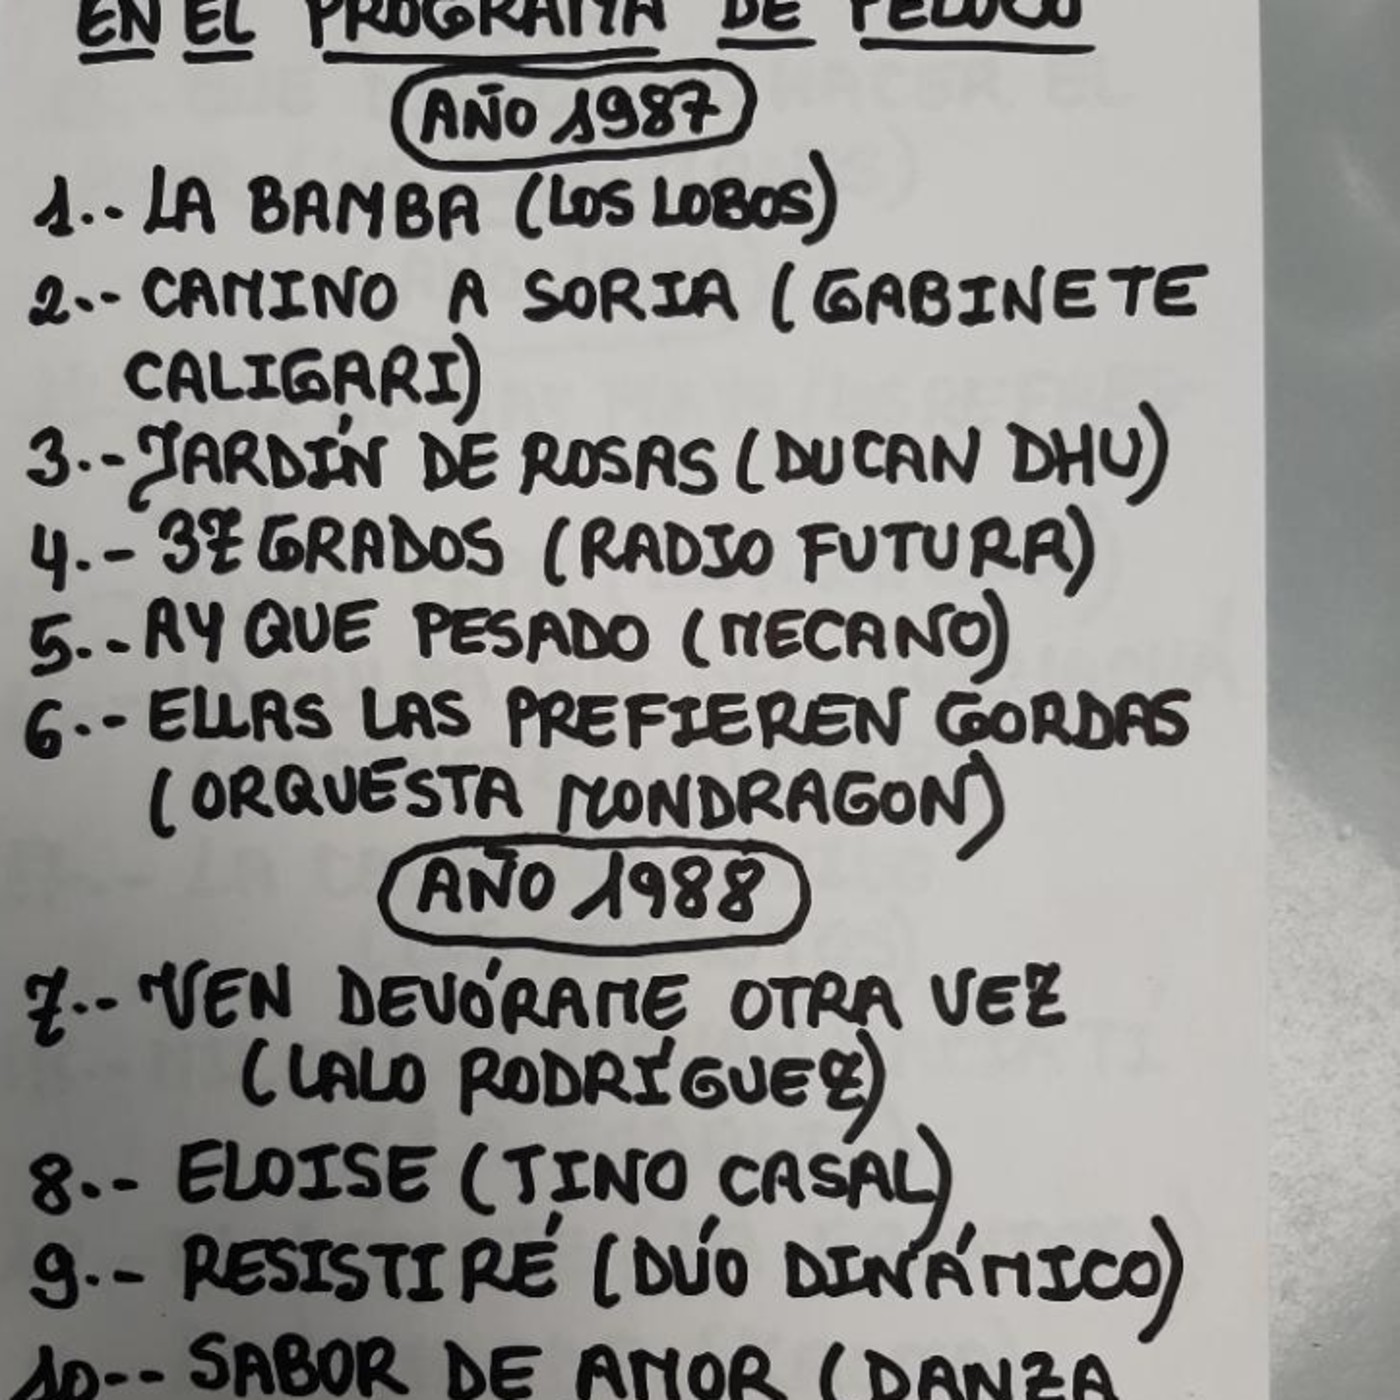 EN EL PROGRAMA DE PELUCO
AÑO 1987
1.- LA BAMBA (LOS LOBOS)
2.- CAMINO A SORIA (GABINETE
CALIGARI)
3.- JARDÍN DE ROSAS (DUCAN DHU)
4.- 37 GRADOS (RADIO FUTURA)
5.- AY QUE PESADO (MECANO)
6.- ELLAS LAS PREFIEREN GORDAS
(ORQUESTA MONDRAGON)
AÑO 1988
7.- VEN DEVÓRAME OTRA VEZ
(LALO RODRÍGUEZ)
8.- ELOISE (TINO CASAL)
9.- RESISTIRÉ (DÚO DINÁMICO)
10.- SABOR DE AMOR (DANZA